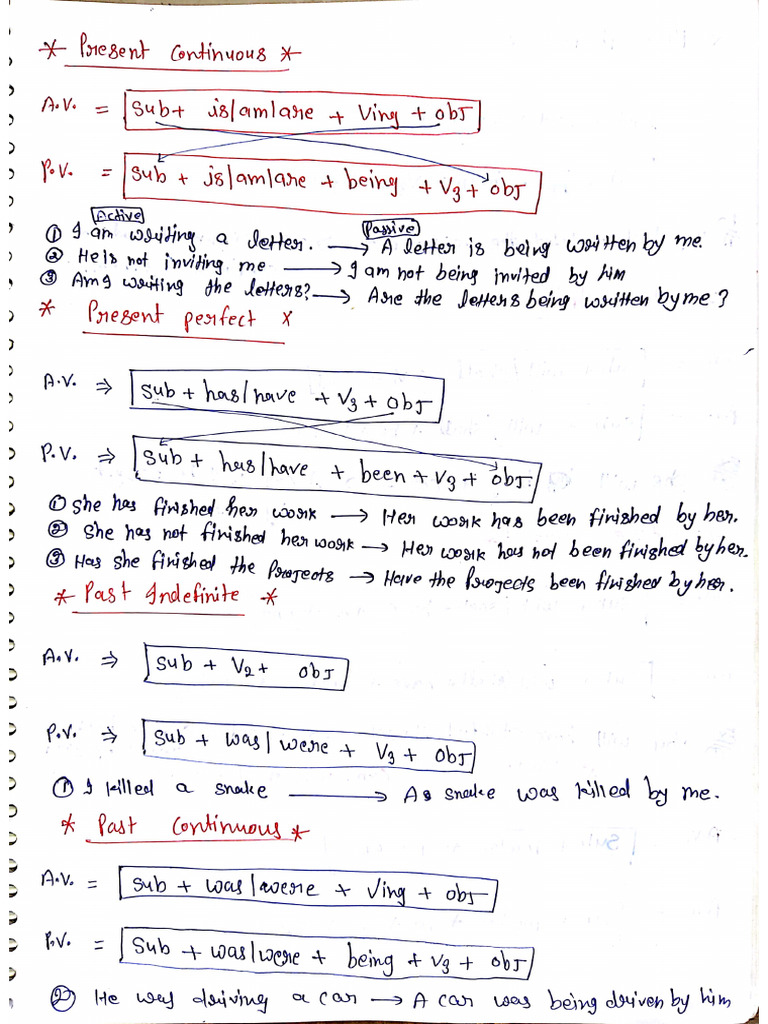 * Present Continuous *
A.V. = Sub + is/am/are + Ving + obJ
P.V. = Sub + is/am/are + being + V3 + obJ
Active Passive
① I am writing a letter. → A letter is being written by me.
② He is not inviting me → I am not being invited by him
③ Am I writing the letters? → Are the letters being written by me?
* Present perfect x
A.V. ⇒ Sub + has/have + V3 + ObJ
P.V. ⇒ Sub + has/have + been + V3 + ObJ.
① She has finished her work → Her work has been finished by her.
② She has not finished her work → Her work has not been finished by her.
③ Has she finished the ProJects → Have the ProJects been finished by her.
* Past Indefinite *
A.V. ⇒ Sub + V2 + obJ
P.V. ⇒ Sub + was/were + V3 + ObJ
① I killed a snake → As snake was killed by me.
* Past Continuous *
A.V. = Sub + was/were + Ving + obJ
P.V. = Sub + was/were + being + V3 + obJ
② He was driving a car → A car was being driven by him